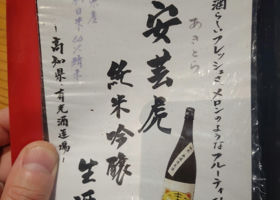 酒らしいフレッシュさ、メロンのようなフルーティ
あきとら
安芸虎
純米吟醸
生酒
~高知県 有光酒造場~